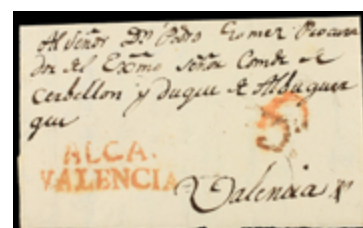 Al Señor Dn Pedro Gomez Procura
dor del Exmo Señor Conde de
Cerbellon y Duque de Albuquer
que
ALCA.
VALENCIA
Valencia